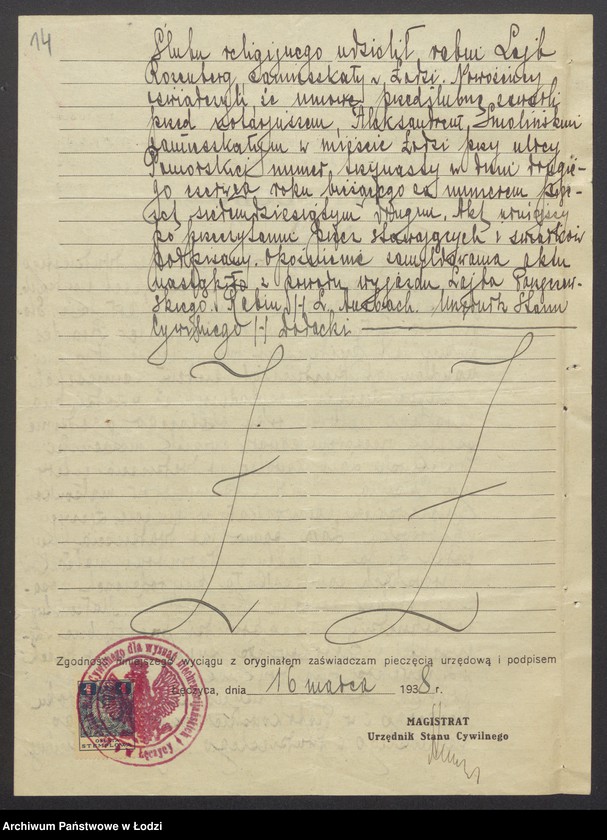 14
Ślubu religijnego udzielił rabin Lajb
Rozenberg, zamieszkały w Łodzi. Nowożeńcy
oświadczyli, że umowę przedślubną zawarli
przed notarjuszem, Aleksandrem Smolińskim
zamieszkałym w mieście Łodzi przy ulicy
Pomorskiej numer trzynasty w dniu drugie-
go czerwca roku bieżącego za numerem
siedemdziesiątym drugim. Akt niniejszy
po przeczytaniu przez stawających i świadków
podpisany. Opóźnienie zameldowania aktu
nastąpiło z powodu wyjazdu Lajba
skiego. Rabin /-/ L. Auzbach. Urzędnik Stanu
Cywilnego /-/
Zgodność niniejszego wyciągu z oryginałem zaświadczam pieczęcią urzędową i podpisem
Łęczyca, dnia 16 marca 1938 r.
MAGISTRAT
Urzędnik Stanu Cywilnego
Archiwum Państwowe w Łodzi